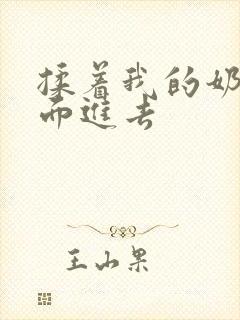 揉着我的奶
而进去
王山果